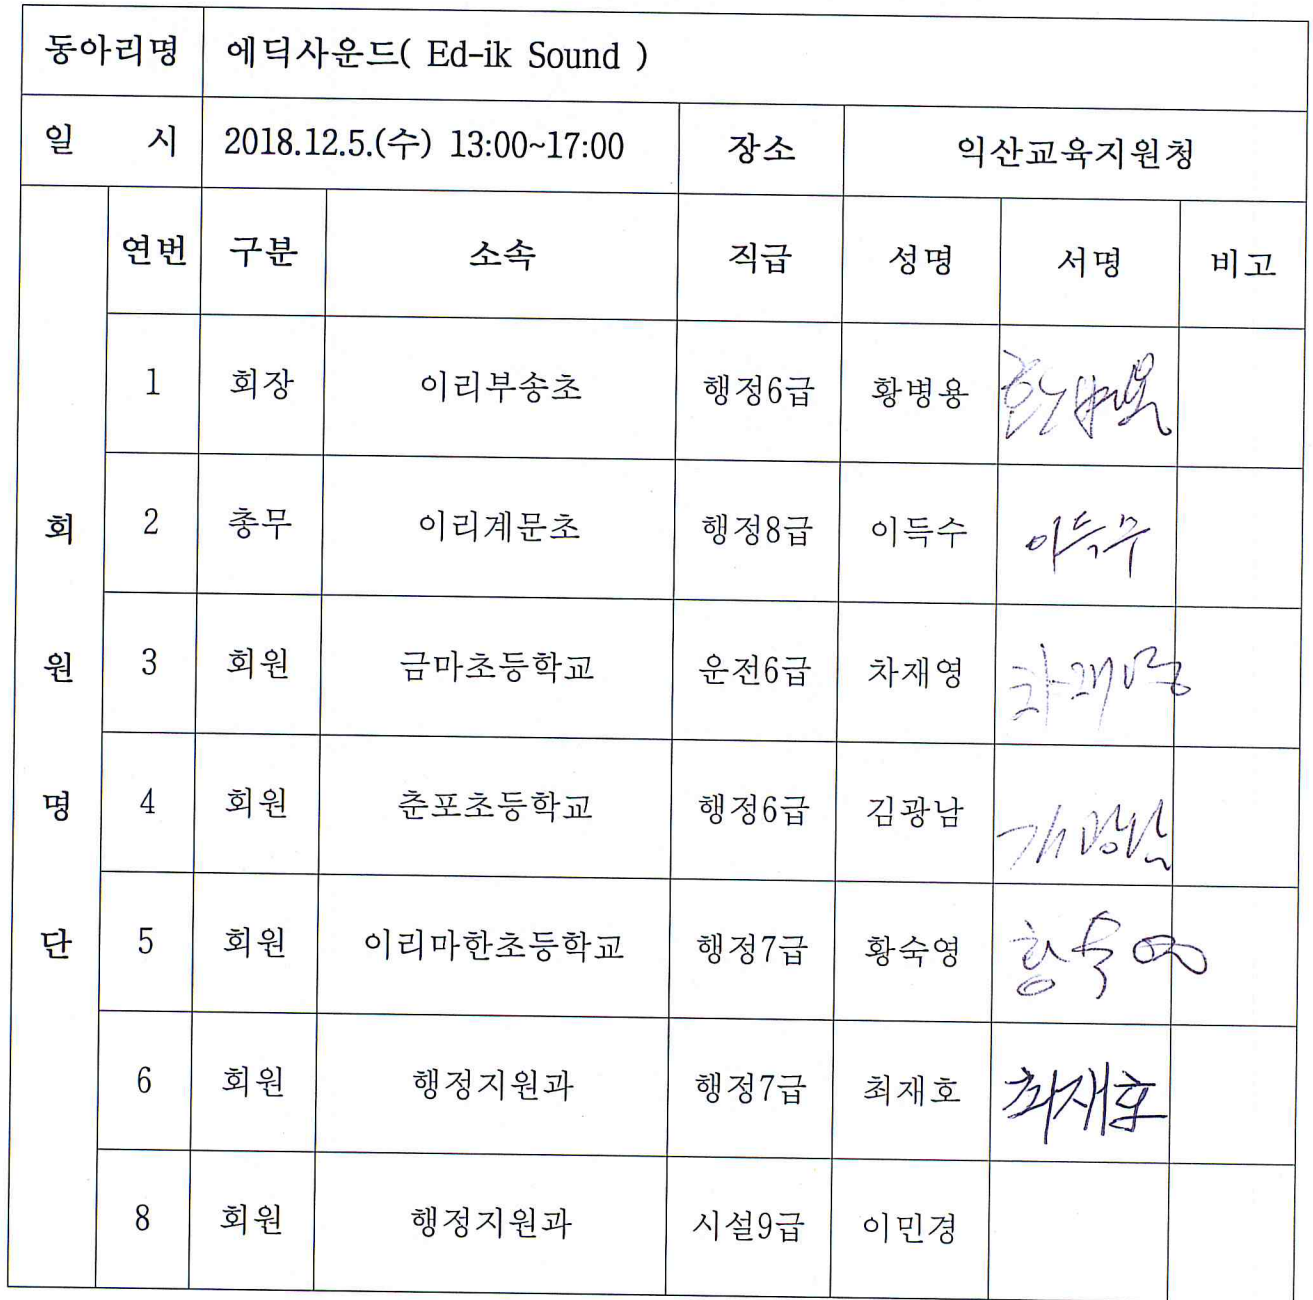 동아리명 에딕사운드( Ed-ik Sound )
일 시 2018.12.5.(수) 13:00~17:00 장소 익산교육지원청
회원명단
연번 구분 소속 직급 성명 서명 비고
1 회장 이리부송초 행정6급 황병용
2 총무 이리계문초 행정8급 이득수 이득수
3 회원 금마초등학교 운전6급 차재영 차재영
4 회원 춘포초등학교 행정6급 김광남
5 회원 이리마한초등학교 행정7급 황숙영 황숙영
6 회원 행정지원과 행정7급 최재호 최재호
8 회원 행정지원과 시설9급 이민경